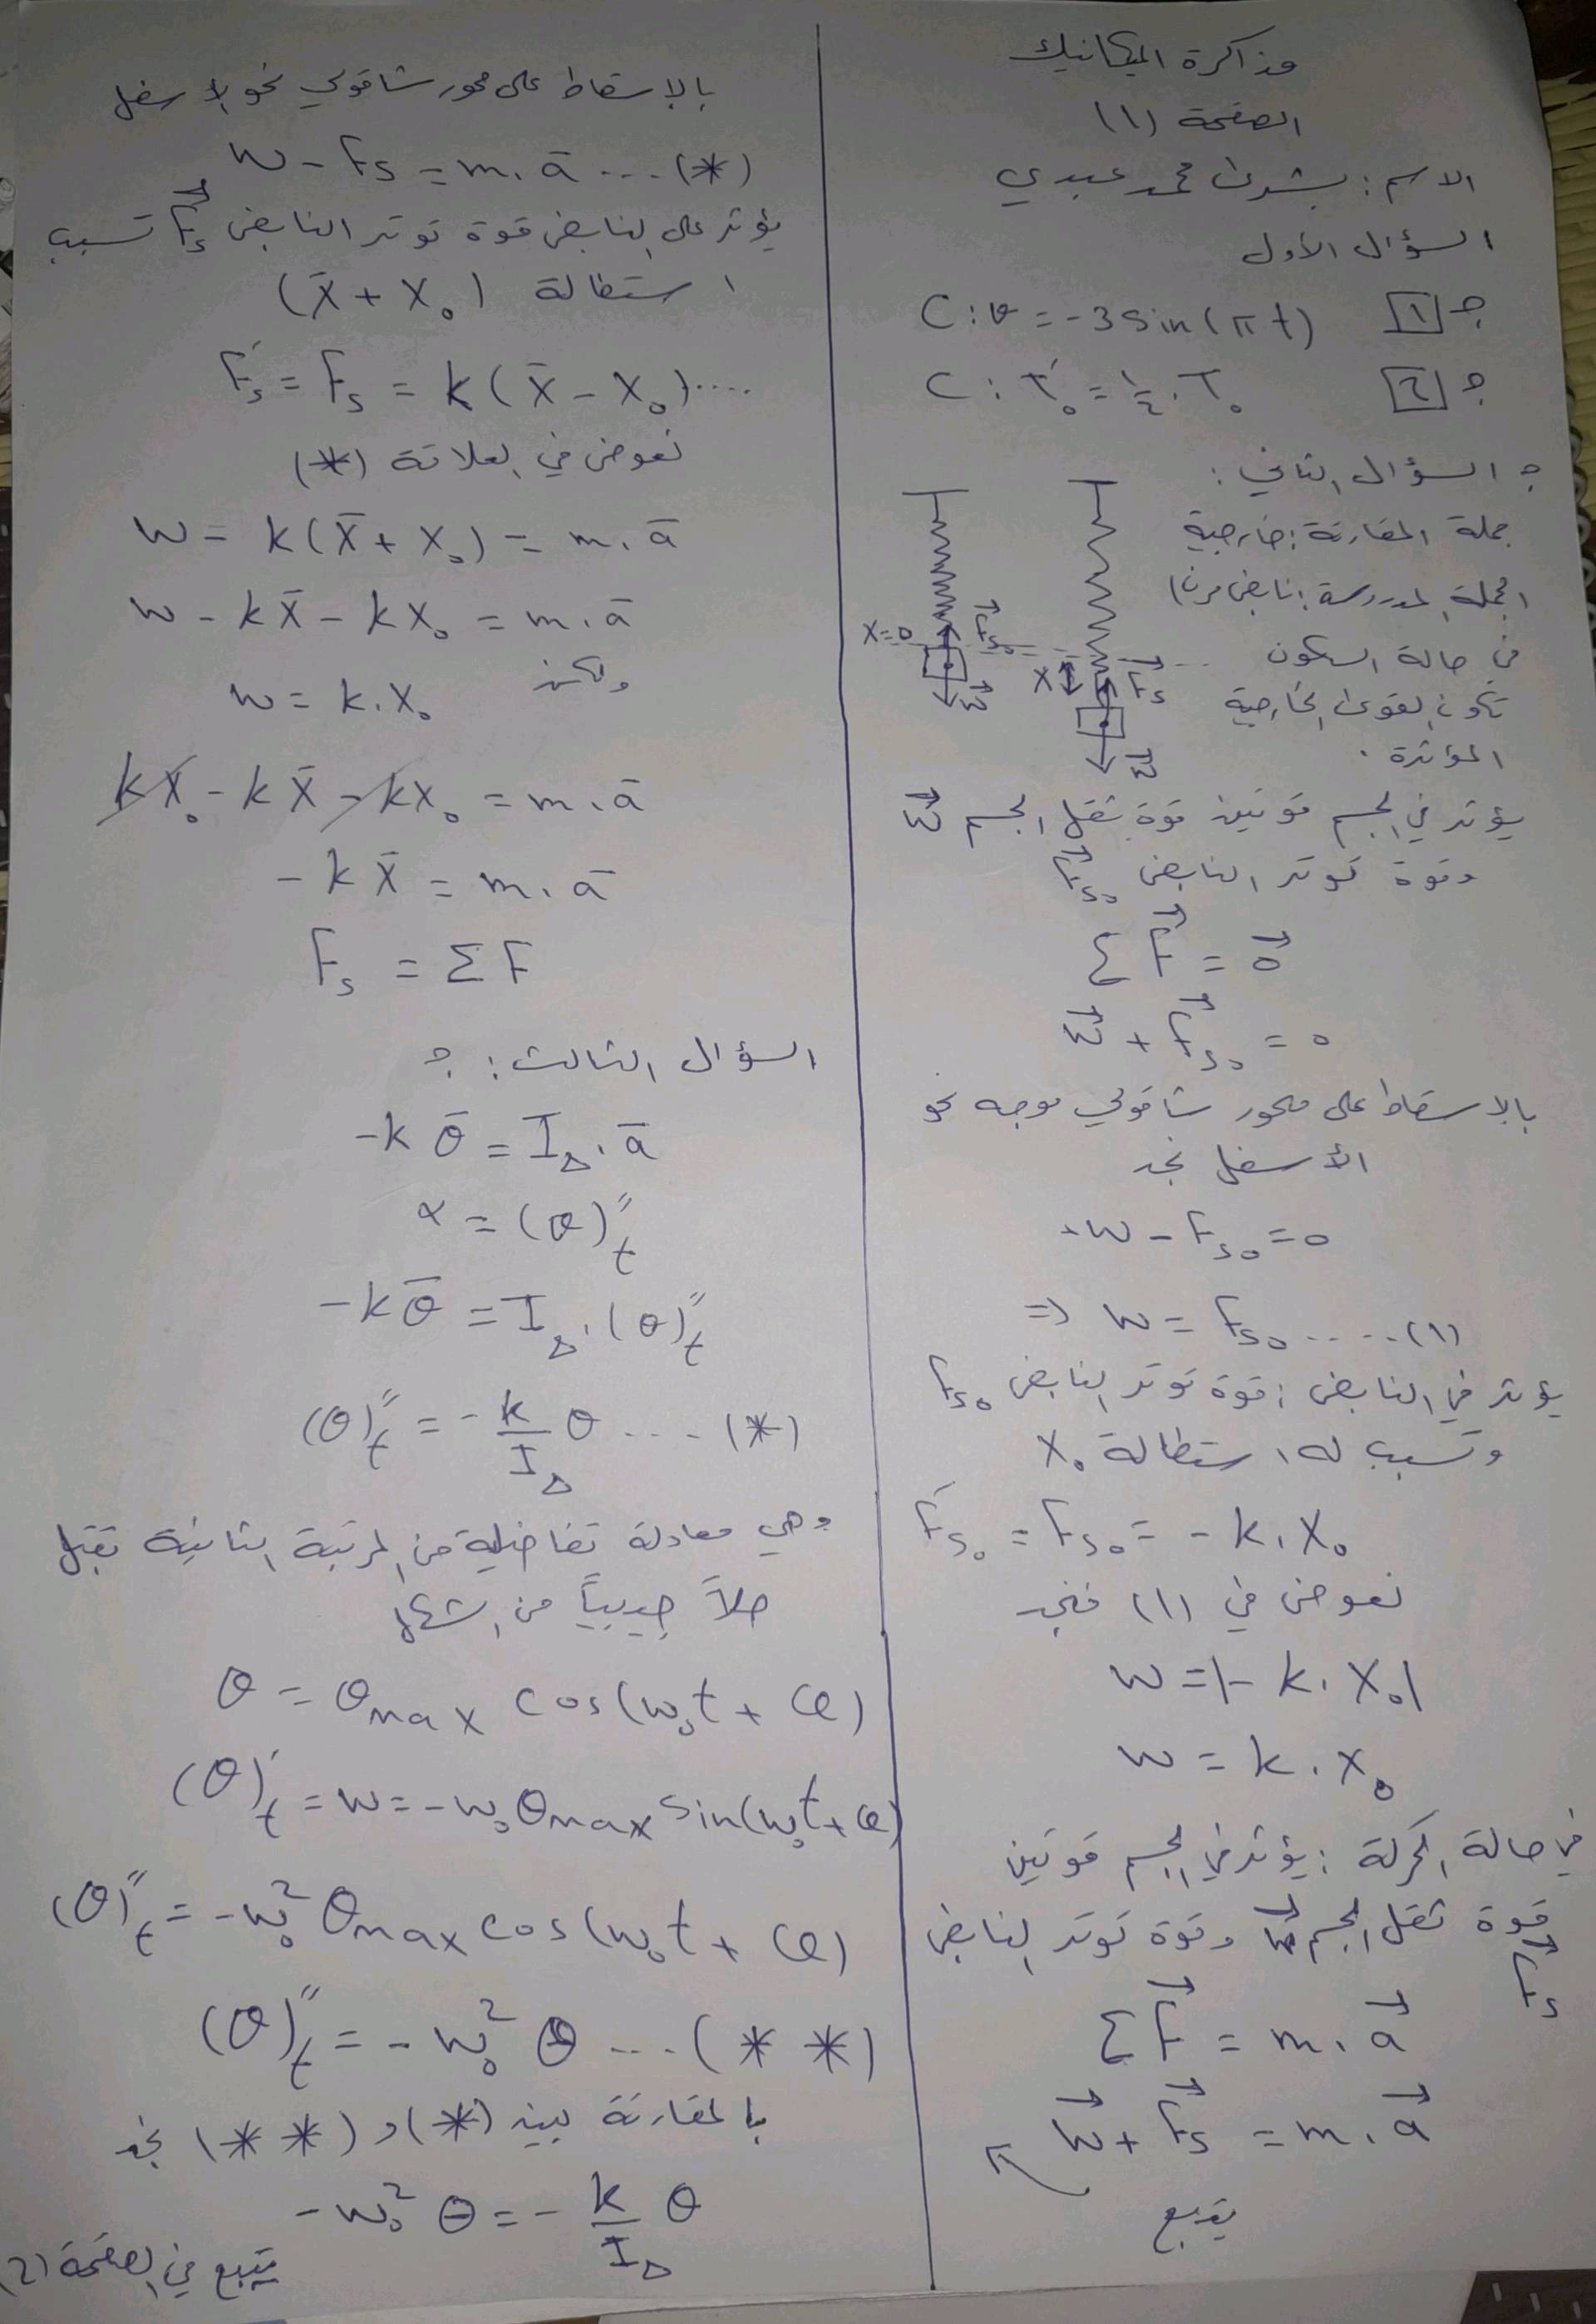 مذاكرة الميكانيك
الصفحة (١)
الاسم: بشرى محمد عبدي
السؤال الأول
ج [١] C: v = -3 sin(π t)
ج [٢] C: T'₀ = ½ . T₀
ج السؤال الثاني:
جملة المقارنة: خارجية
الجملة المدروسة: نابض مرن
في حالة السكون
تكون القوى الخارجية
المؤثرة.
X=0 F⃗s₀ W⃗ X F⃗s W⃗
يؤثر في الجسم قوتين قوة ثقل الجسم W⃗
وقوة توتر النابض F⃗s₀
ΣF⃗ = 0⃗
W⃗ + F⃗s₀ = 0
بالاسقاط على محور شاقولي موجه نحو
الأسفل نجد
+W - Fs₀ = 0
⇒ W = Fs₀ .....(١)
يؤثر في النابض: قوة توتر النابض Fs₀
وتسبب له استطالة X₀
F's₀ = Fs₀ = - k . X₀
نعوض في (١) فنجد
W = |- k . X₀|
W = k . X₀
في حالة الحركة: يؤثر في الجسم قوتين
قوة ثقل الجسم W⃗ وقوة توتر النابض
F⃗s
ΣF⃗ = m . a⃗
W⃗ + F⃗s = m . a⃗
يتبع
بالإسقاط على محور شاقولي نحو الأسفل
W - Fs = m . a̅ ... (*)
يؤثر على النابض قوة توتر النابض F⃗'s تسبب
استطالة (x̅ + X₀)
F's = Fs = k (x̅ - X₀)....
نعوض في العلاقة (*)
W = k (x̅ + X₀) = m . a̅
W - k x̅ - k X₀ = m . a̅
ولكن W = k . X₀
k X₀ - k x̅ - k X₀ = m . a̅
- k x̅ = m . a̅
Fs = ΣF
السؤال الثالث: ج
-k θ̅ = I_Δ . a̅
α = (θ)″t
- k θ̅ = I_Δ . (θ)″t
(θ)″t = - k/I_Δ θ ... (*)
وهي معادلة تفاضلية من المرتبة الثانية تقبل
حلاً جيبياً من الشكل
θ = θmax cos(ω₀t + φ)
(θ)′t = ω = -ω₀ θmax sin(ω₀t + φ)
(θ)″t = -ω₀² θmax cos(ω₀t + φ)
(θ)″t = - ω₀² θ ... (* *)
بالمقارنة بين (*) و (* *) نجد
- ω₀² θ = - k/I_Δ θ
يتبع في الصفحة (2)